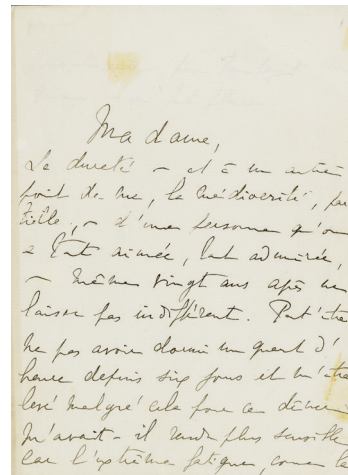 Madame,
La dureté – et à un autre
point de vue, la médiocrité, par
– d'une personne qu'on
a tant aimée, tant admirée,
– même vingt ans après ne
laisse pas indifférent. Peut'être
ne pas avoir dormi un quart d'
heure depuis six jours et m'être
levé malgré cela pour ce dîner
m'avait-il rendu plus sensible
car l'extrême fatigue comme le